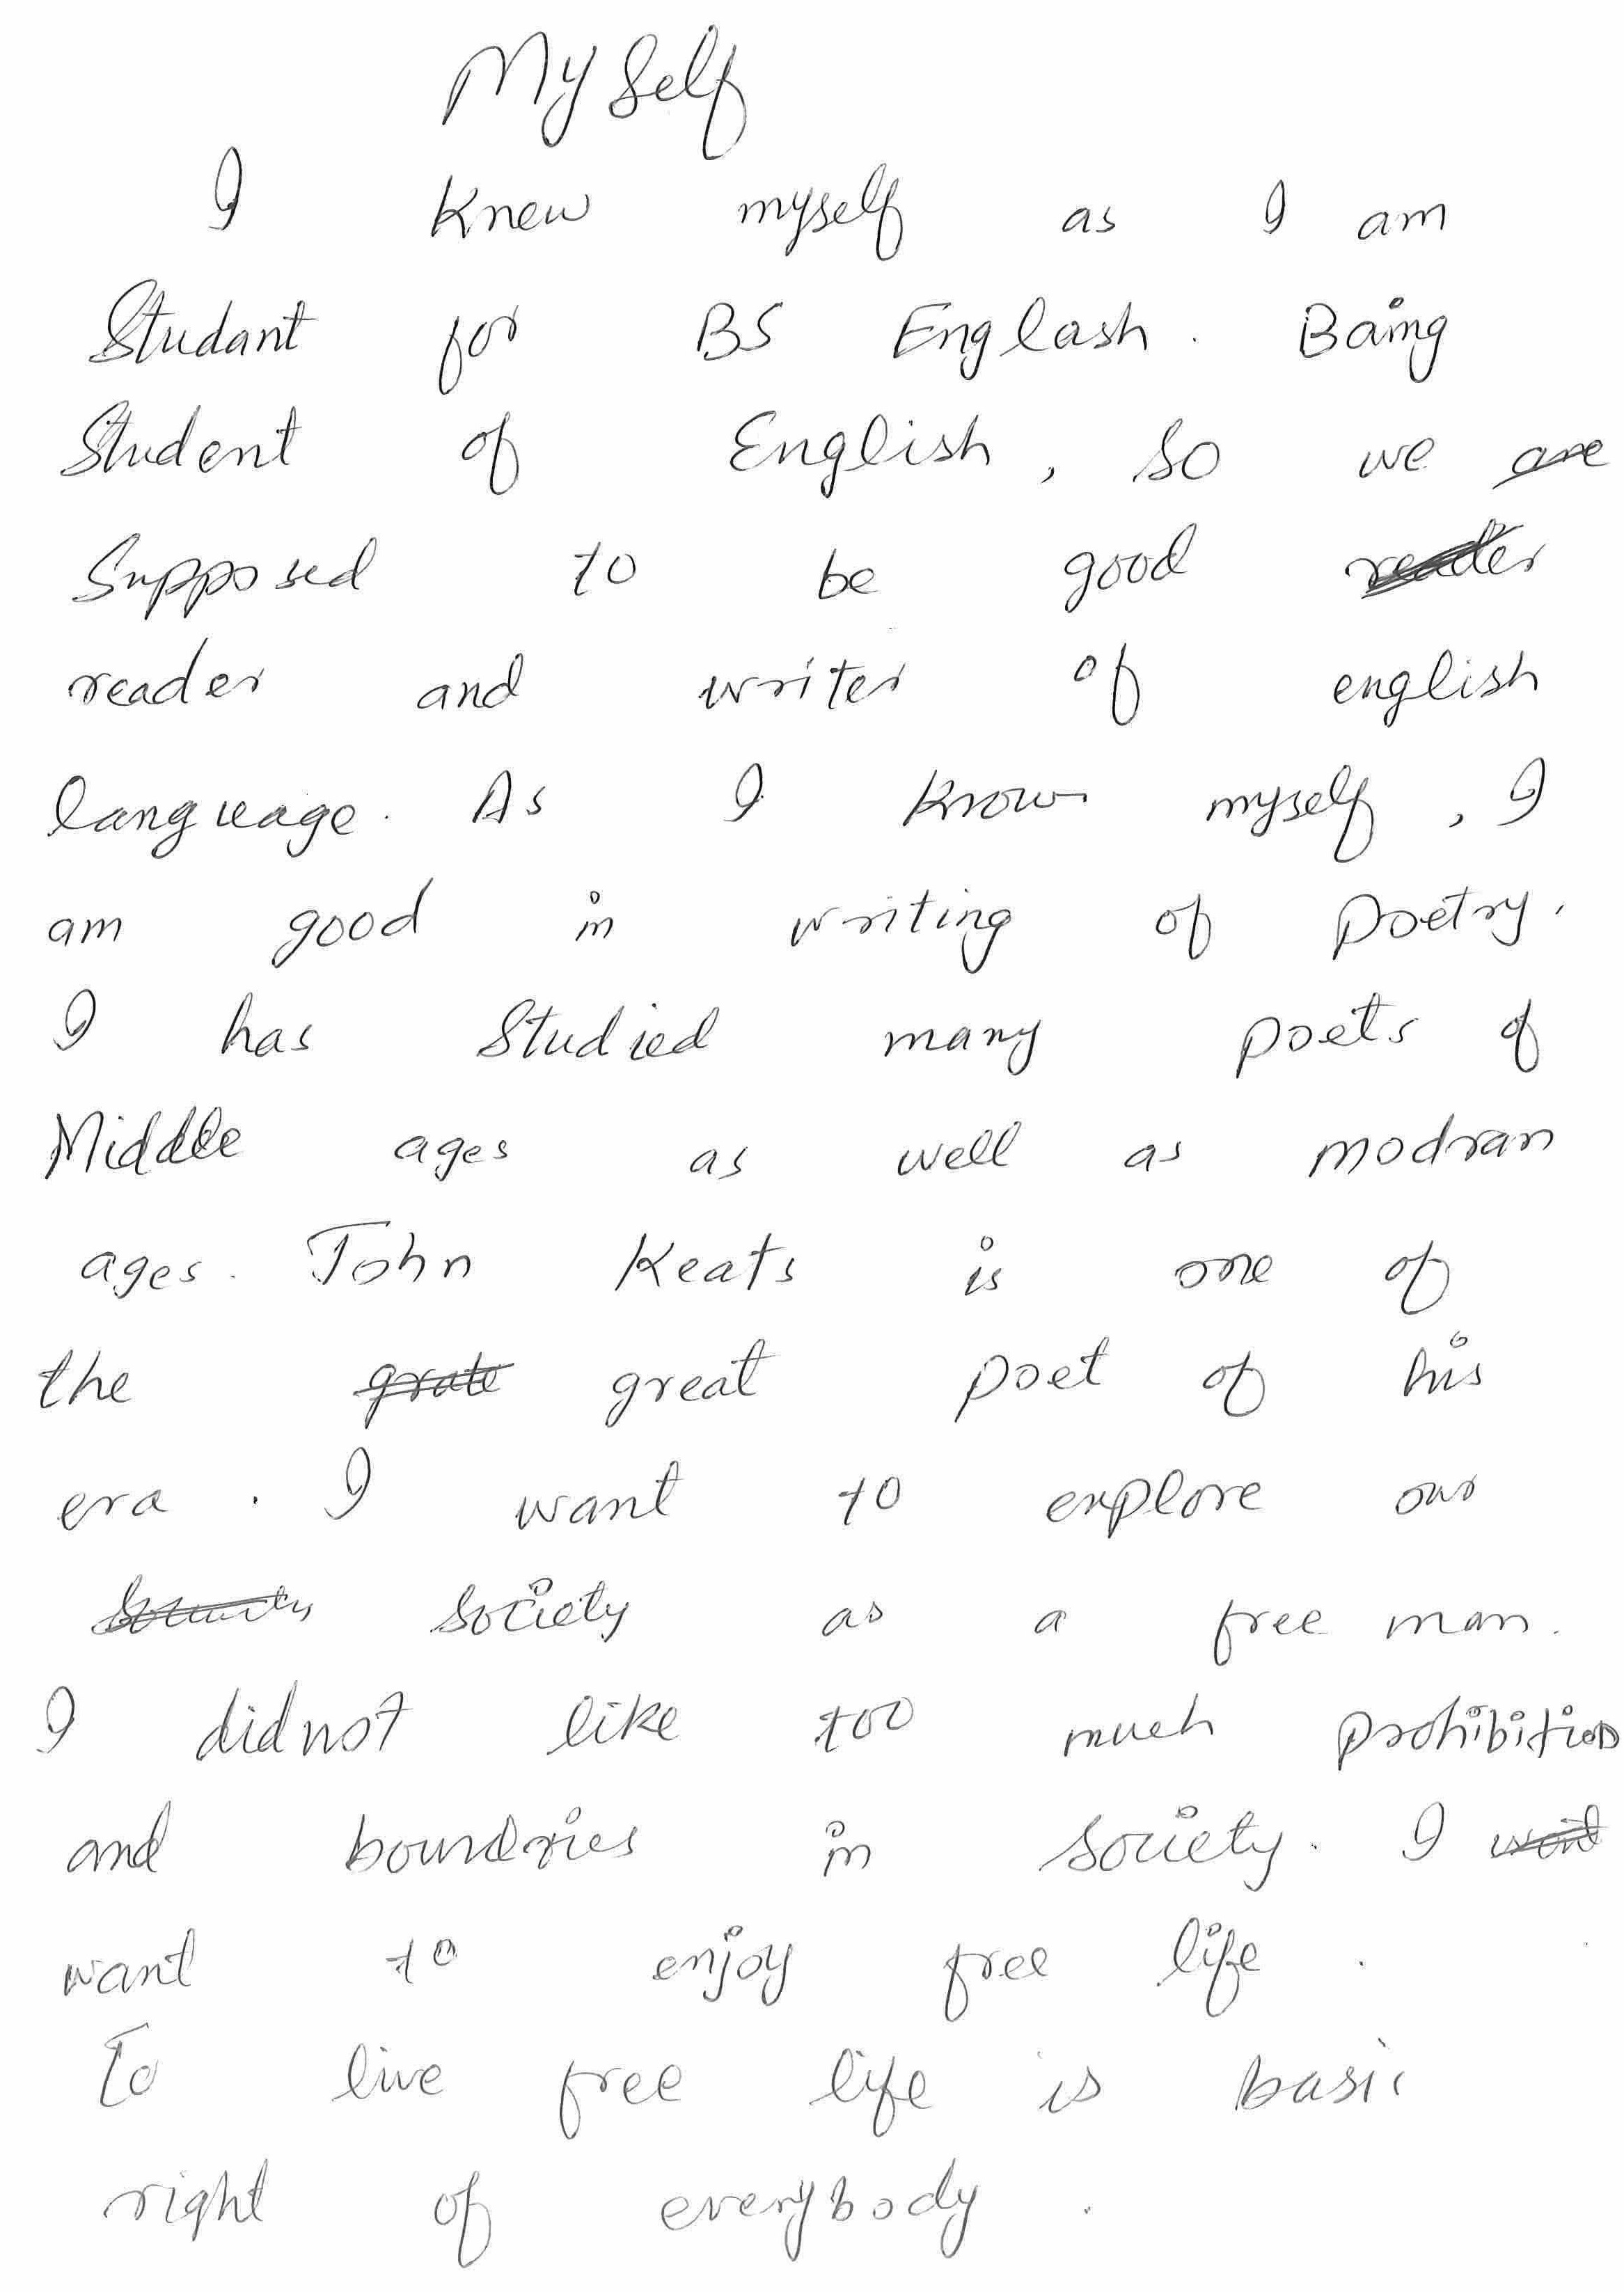 My Self
I Knew myself as I am
Studant for BS Englash. Baing
Student of English, so we are
Supposed to be good reader
reader and writer of english
language. As I know myself, I
am good in writing of Poetry.
I has Studied many poets of
Middle ages as well as modran
ages. John Keats is one of
the grate great poet of his
era. I want to explore our
society as a free man.
I didnot like too much prohibition
and boundries in society. I
want to enjoy free life.
To live free life is basic
right of everybody.